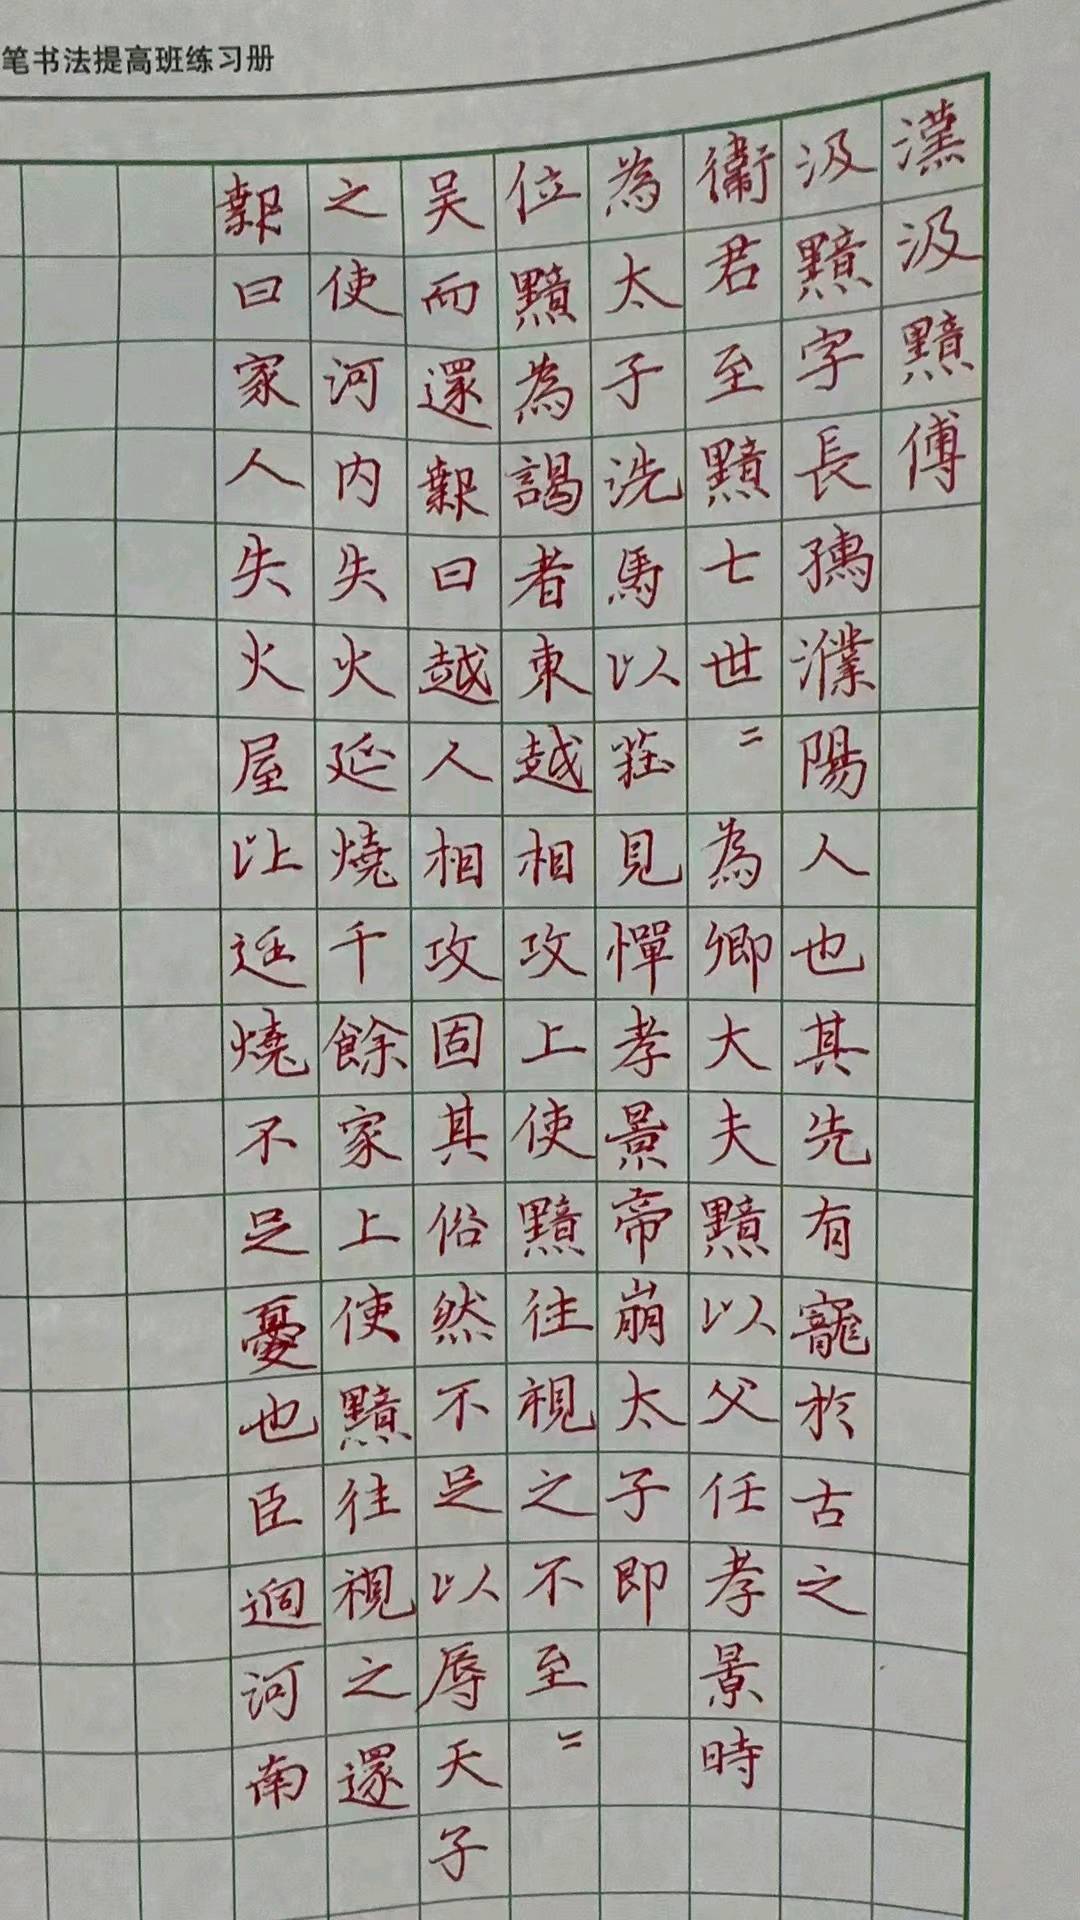 笔书法提高班练习册
漢汲黯傳
汲黯字長孺濮陽人也其先有寵於古之
衛君至黯七世〻為卿大夫黯以父任孝景時
為太子洗馬以莊見憚孝景帝崩太子即
位黯為謁者東越相攻上使黯往視之不至〻
吴而還報曰越人相攻固其俗然不足以辱天子
之使河内失火延燒千餘家上使黯往視之還
報曰家人失火屋比延燒不足憂也臣過河南